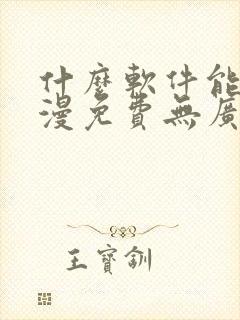 什麼軟件能
漫免費無廣
王寶釧